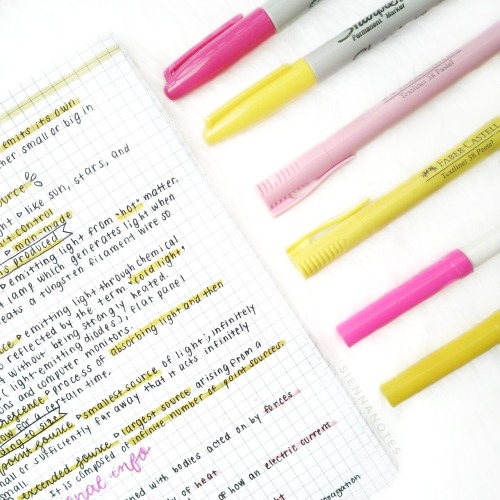 emits its own
her small or big in
like sun, stars, and
control
man-made
is produced
emitting light from "hot" matter.
lamp which generates light when
heats a tungsten filament wire so
emitting light through chemical
reflected by the term "cold light"
without being strongly heated.
(light-emitting diodes), flat panel
and computer monitors.
process of absorbing light and then
for a certain time.
to size
point source smallest source of light; infinitely
small or sufficiently far away that it acts infinitely
extended source largest source arising from a
It is composed of infinite number of point sources.
info
with bodies acted on by forces
of heat
of how an electric current
propagation
Sharpie
Permanent Marker
Sharpie
Textliner 38 Pastel
FABER-CASTELL
Textliner 38 Pastel
SIENNANOTES